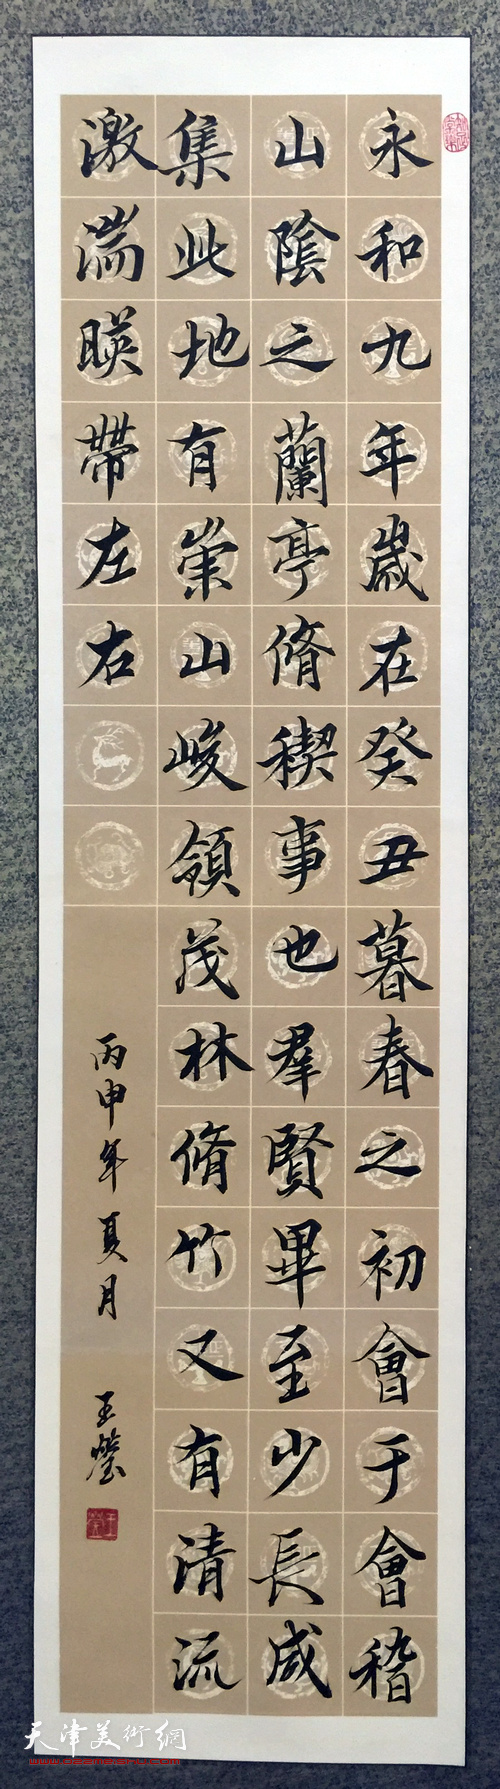 永和九年歲在癸丑暮春之初會于會稽
山陰之蘭亭脩稧事也羣賢畢至少長咸
集此地有崇山峻領茂林脩竹又有清流
激湍暎帶左右
丙申年夏月
王瑩
王瑩
天津美術網